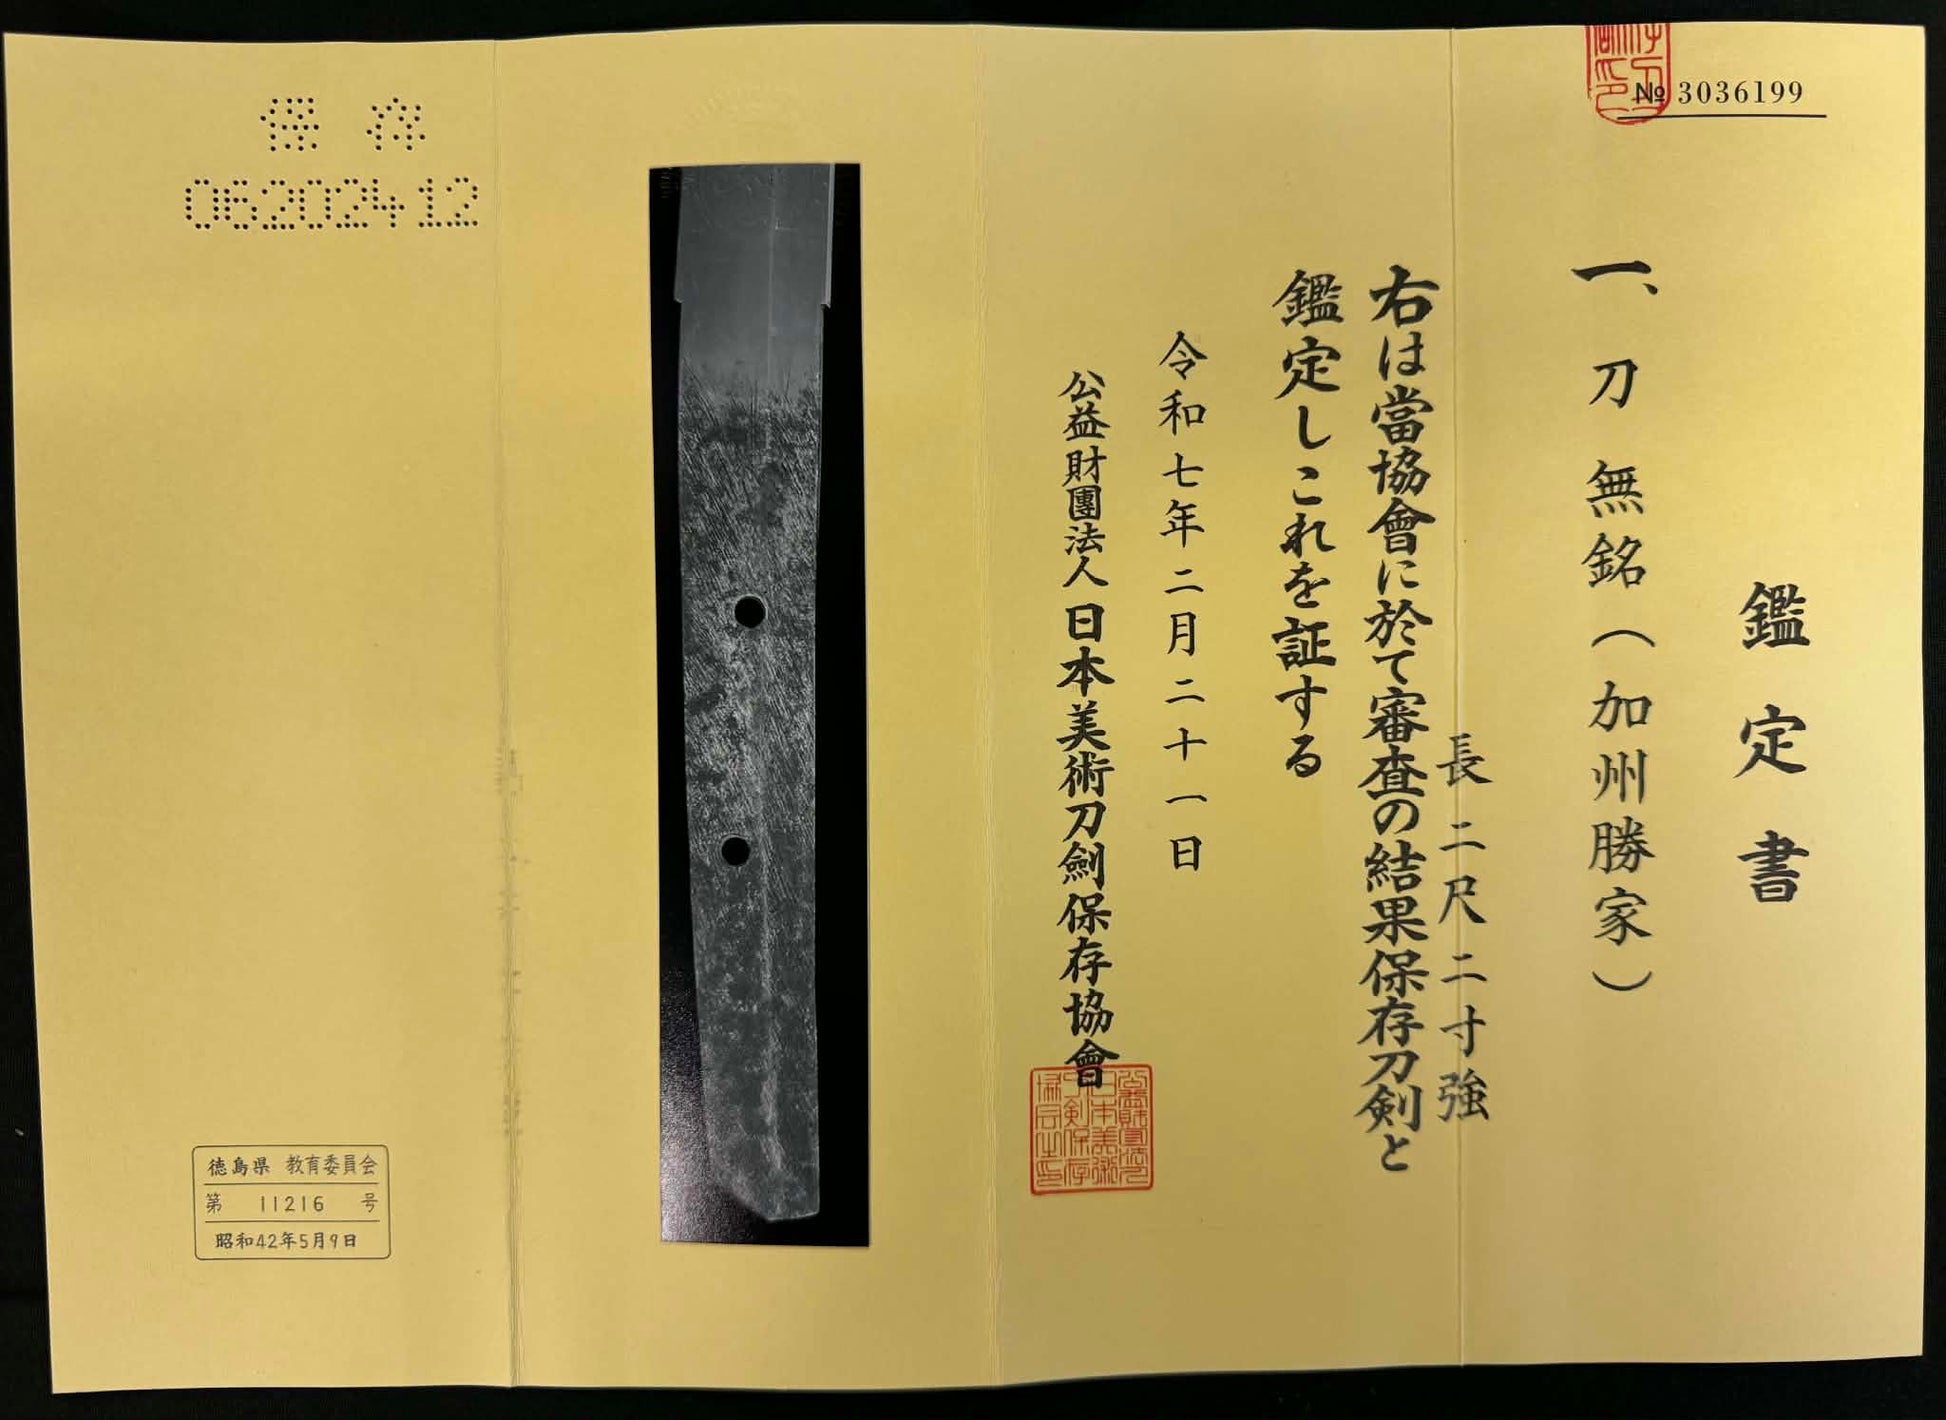 № 3036199
鑑定書
一、刀 無銘（加州勝家）
長 二尺二寸強
右は當協會に於て審査の結果保存刀剣と
鑑定しこれを証する
令和七年二月二十一日
公益財團法人 日本美術刀劍保存協會
保存
06202412
徳島県 教育委員会
第 11216 号
昭和42年5月9日